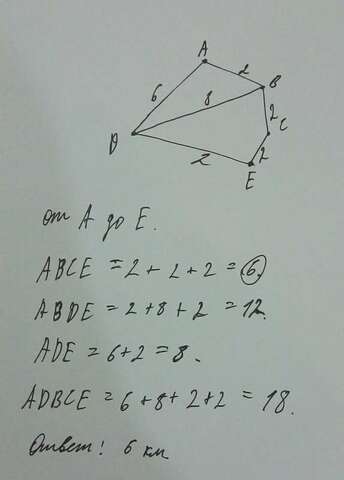 A
2
B
6
8
2
D
C
2
2
E
от A до E.
ABCE = 2 + 2 + 2 = 6.
ABDE = 2 + 8 + 2 = 12.
ADE = 6 + 2 = 8.
ADBCE = 6 + 8 + 2 + 2 = 18.
Ответ: 6 км